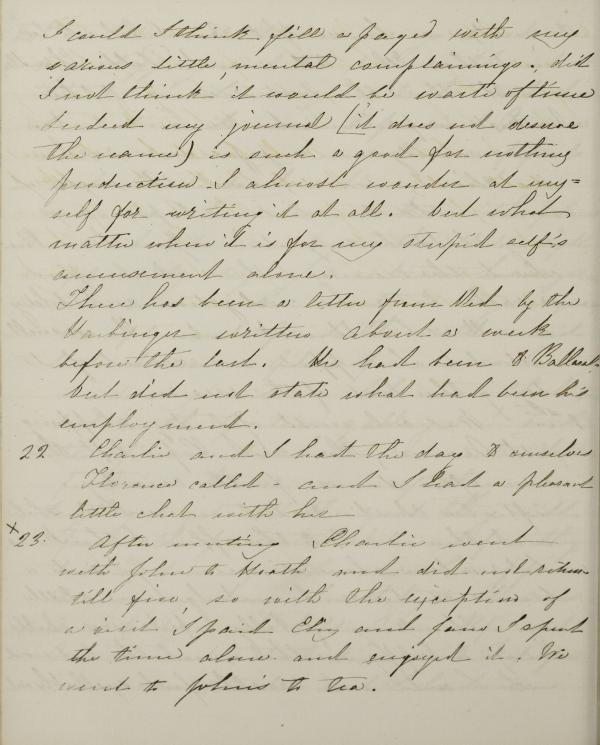 I could I think fill a paged with my
various little mental complainings, did
I not think it would be waste of time
Indeed my journal (it does not deserve
the name) is such a good for nothing
production I almost wonder at my=
self for writing it at all. but what
matter when it is for my stupid self's
amusement alone.
There has been a letter from Ned by the
Harbinger written about a week
before the last. He had been to Ballarat
but did not state what had been his
employment.
22 Charlie and I had the day to ourselves
Florence called - and I had a pleasant
little chat with her
x 23. After meeting Charlie went
with John to Hoath and did not return
till five, so with the exception of
a visit I paid Eliz and Jane I spent
the time alone and enjoyed it. We
went to John's to tea.